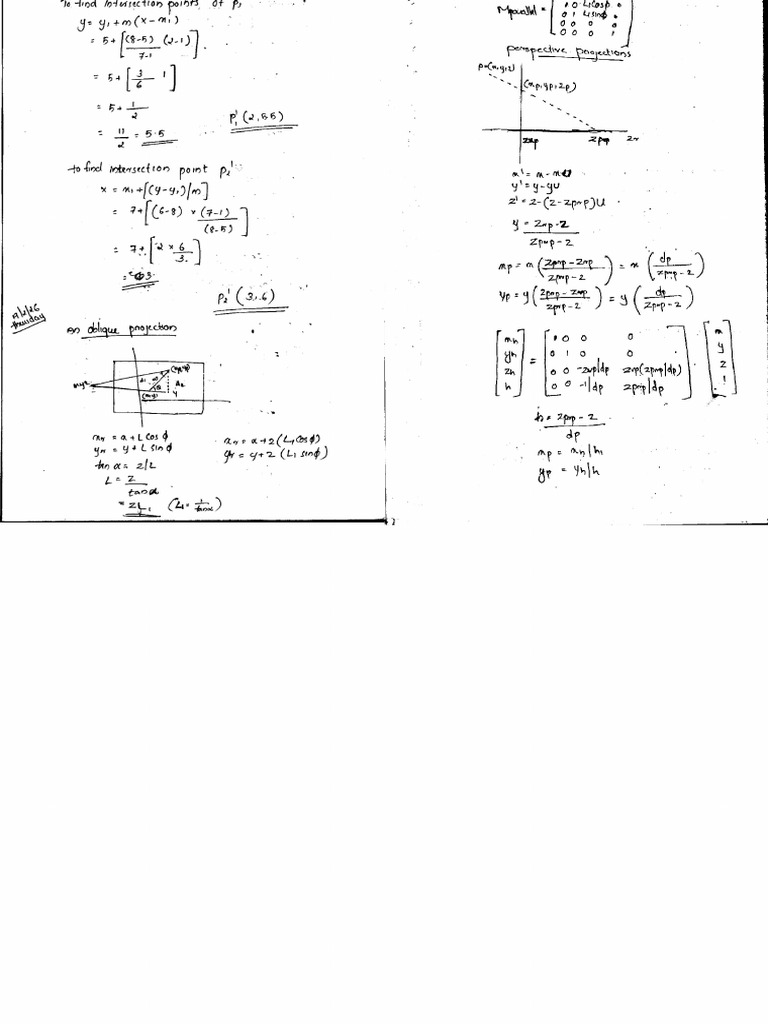 To find intersection points of P1
y = y1 + m(x - x1)
= 5 + [(8-5)/7-1 (2-1)]
= 5 + [3/6 1]
= 5 + 1/2
= 11/2 = 5.5
P1' (2, 5.5)
to find intersection point P2'
x = x1 + [(y - y1)/m]
= 7 + [(6-8) × (7-1)/(8-5)]
= 7 + [-2 × 6/3]
P2' (3, 6)
An oblique projection
xp = x + L cosϕ
yp = y + L sinϕ
tan α = z/L
L = z/tanα
= zL1 (L1 = 1/tanα)
xp = x + z (L1 cosϕ)
yp = y + z (L1 sinϕ)
Mparallel = [1 0 L1cosϕ 0
0 1 L1sinϕ 0
0 0 0 0
0 0 0 1]
perspective projections
P=(x,y,z)
(xp, yp, zp)
zvp zprp zv
x' = x - xu
y' = y - yu
z' = z - (z - zprp)u
y = zvp - z / zprp - z
xp = x (zprp - zvp / zprp - z) = x (dp / zprp - z)
yp = y (zprp - zvp / zprp - z) = y (dp / zprp - z)
[xh yh zh h] = [1 0 0 0
0 1 0 0
0 0 -zvp/dp zvp(zprp/dp)
0 0 -1/dp zprp/dp] . [x y z 1]
h = zprp - z / dp
xp = xh/h
yp = yh/h